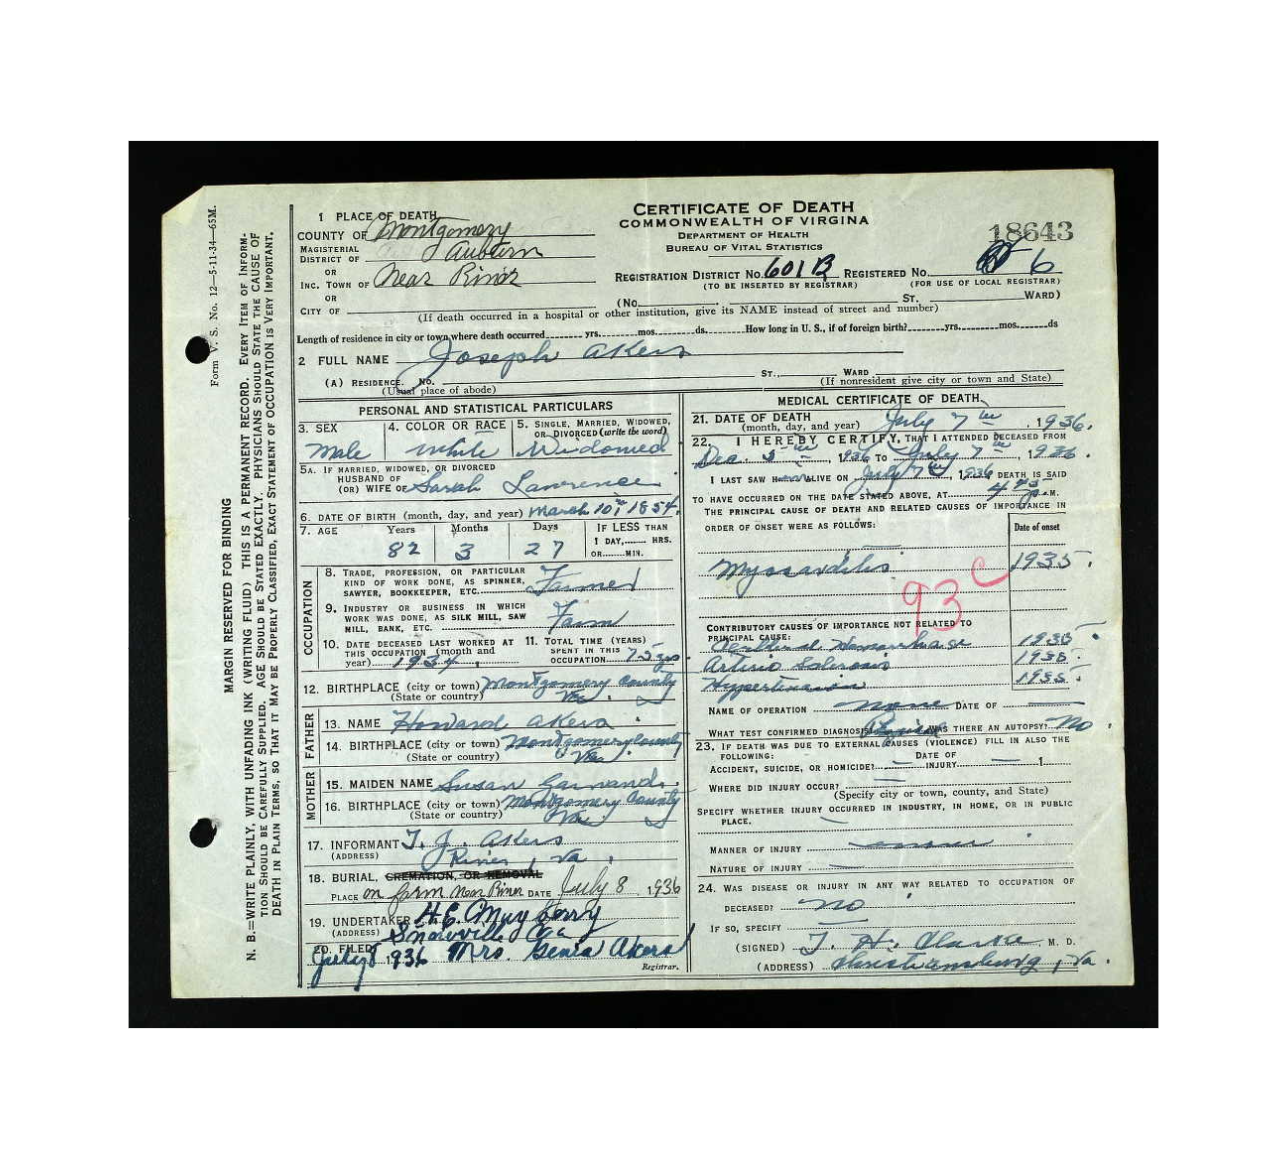 Form V. S. No. 12—5-11-34—65M.
MARGIN RESERVED FOR BINDING
N. B.—WRITE PLAINLY, WITH UNFADING INK (WRITING FLUID) THIS IS A PERMANENT RECORD. EVERY ITEM OF INFORM-
TION SHOULD BE CAREFULLY SUPPLIED. AGE SHOULD BE STATED EXACTLY. PHYSICIANS SHOULD STATE THE CAUSE OF
DEATH IN PLAIN TERMS, SO THAT IT MAY BE PROPERLY CLASSIFIED. EXACT STATEMENT OF OCCUPATION IS VERY IMPORTANT.
CERTIFICATE OF DEATH
COMMONWEALTH OF VIRGINIA
DEPARTMENT OF HEALTH
BUREAU OF VITAL STATISTICS
18643
1 PLACE OF DEATH
COUNTY OF Montgomery
MAGISTERIAL DISTRICT OF Auburn
OR
INC. TOWN OF Near Riner
OR
CITY OF
REGISTRATION DISTRICT NO. 601B REGISTERED NO. 6
(TO BE INSERTED BY REGISTRAR) (FOR USE OF LOCAL REGISTRAR)
(No. ST. WARD)
(If death occurred in a hospital or other institution, give its NAME instead of street and number)
Length of residence in city or town where death occurred yrs. mos. ds. How long in U. S., if of foreign birth? yrs. mos. ds
2 FULL NAME Joseph Akers
(A) RESIDENCE. NO. ST., WARD
(Usual place of abode) (If nonresident give city or town and State)
PERSONAL AND STATISTICAL PARTICULARS
3. SEX 4. COLOR OR RACE 5. SINGLE, MARRIED, WIDOWED, OR DIVORCED (write the word)
Male White Widowed
5A. IF MARRIED, WIDOWED, OR DIVORCED
HUSBAND OF
(OR) WIFE OF Sarah Lawrence
6. DATE OF BIRTH (month, day, and year) March 10, 1854.
7. AGE Years Months Days IF LESS THAN
1 DAY, HRS.
OR MIN.
82 3 27
OCCUPATION
8. TRADE, PROFESSION, OR PARTICULAR
KIND OF WORK DONE, AS SPINNER,
SAWYER, BOOKKEEPER, ETC. Farmer
9. INDUSTRY OR BUSINESS IN WHICH
WORK WAS DONE, AS SILK MILL, SAW
MILL, BANK, ETC. Farm
10. DATE DECEASED LAST WORKED AT
THIS OCCUPATION (month and
year) 1934
11. TOTAL TIME (YEARS)
SPENT IN THIS
OCCUPATION 75 yrs
12. BIRTHPLACE (city or town) Montgomery County
(State or country) Va.
FATHER
13. NAME Howard Akers
14. BIRTHPLACE (city or town) Montgomery County
(State or country) Va
MOTHER
15. MAIDEN NAME Susan
16. BIRTHPLACE (city or town) Montgomery County
(State or country) Va
17. INFORMANT T. J. Akers
(ADDRESS) Riner, Va.
18. BURIAL, CREMATION, OR REMOVAL
PLACE on farm near Riner DATE July 8 1936
19. UNDERTAKER H. C. Mayberry
(ADDRESS) Snowville Va
20. FILED July 8 1936 Mrs. Akers
Registrar.
MEDICAL CERTIFICATE OF DEATH
21. DATE OF DEATH
(month, day, and year) July 7th, 1936.
22. I HEREBY CERTIFY, THAT I ATTENDED DECEASED FROM
Dec. 5th, 1936 TO July 7th, 1936.
I LAST SAW HIM ALIVE ON July 7th, 1936 DEATH IS SAID
TO HAVE OCCURRED ON THE DATE STATED ABOVE, AT P. M.
THE PRINCIPAL CAUSE OF DEATH AND RELATED CAUSES OF IMPORTANCE IN
ORDER OF ONSET WERE AS FOLLOWS:
Date of onset
Myocarditis 1935.
93c
CONTRIBUTORY CAUSES OF IMPORTANCE NOT RELATED TO
PRINCIPAL CAUSE:
Cerebral Hemorrhage 1935.
Arterio Sclerosis 1935.
Hypertension 1935.
NAME OF OPERATION none DATE OF
WHAT TEST CONFIRMED DIAGNOSIS? WAS THERE AN AUTOPSY? No.
23. IF DEATH WAS DUE TO EXTERNAL CAUSES (VIOLENCE) FILL IN ALSO THE
FOLLOWING:
ACCIDENT, SUICIDE, OR HOMICIDE? DATE OF INJURY 1
WHERE DID INJURY OCCUR?
(Specify city or town, county, and State)
SPECIFY WHETHER INJURY OCCURRED IN INDUSTRY, IN HOME, OR IN PUBLIC
PLACE.
MANNER OF INJURY
NATURE OF INJURY
24. WAS DISEASE OR INJURY IN ANY WAY RELATED TO OCCUPATION OF
DECEASED? no
IF SO, SPECIFY
(SIGNED) T. H. Clarke M. D.
(ADDRESS) Christiansburg, Va.